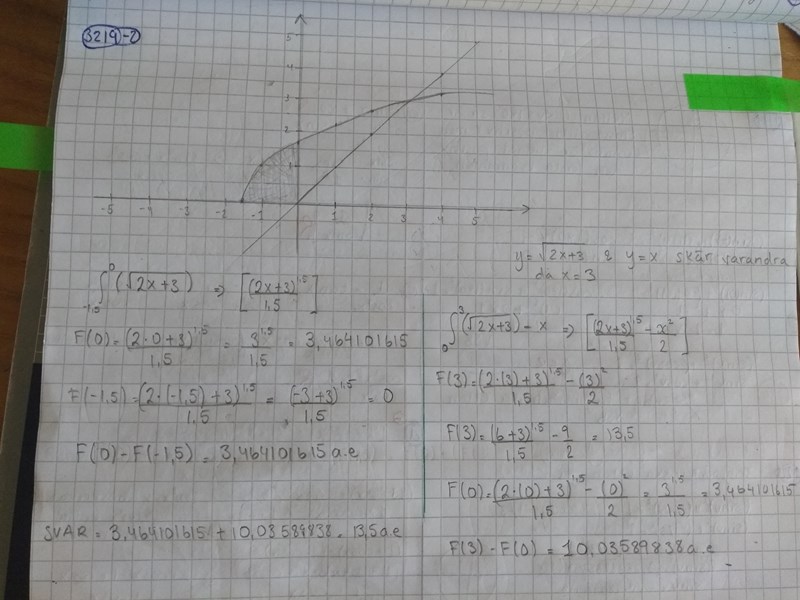 3219-2
5
4
3
2
1
-5 -4 -3 -2 -1 1 2 3 4 5
y=√2x+3 & y=x skär varandra
då x=3
∫₋₁,₅⁰ (√2x+3) => [(2x+3)^1,5 / 1,5]
F(0)=(2·0+3)^1,5 / 1,5 = 3^1,5 / 1,5 = 3,464101615
F(-1,5)=(2·(-1,5)+3)^1,5 / 1,5 = (-3+3)^1,5 / 1,5 = 0
F(0)-F(-1,5) = 3,464101615 a.e
SVAR = 3,464101615 + 10,03589838 = 13,5 a.e
∫₀³ (√2x+3) - x => [(2x+3)^1,5 / 1,5 - x² / 2]
F(3)=(2·(3)+3)^1,5 / 1,5 - (3)² / 2
F(3)=(6+3)^1,5 / 1,5 - 9 / 2 = 13,5
F(0)=(2·(0)+3)^1,5 / 1,5 - (0)² / 2 = 3^1,5 / 1,5 = 3,464101615
F(3)-F(0) = 10,03589838 a.e